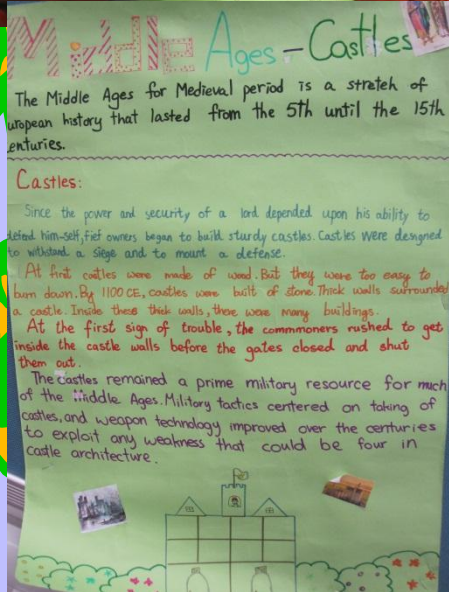 Middle Ages - Castles
The Middle Ages for Medieval period is a stretch of
uropean history that lasted from the 5th until the 15th
enturies.
Castles:
Since the power and security of a lord depended upon his ability to
defend him-self, fief owners began to build sturdy castles. Castles were designed
to withstand a siege and to mount a defense.
At first castles were made of wood. But they were too easy to
burn down. By 1100 CE, castles were built of stone. Thick walls surrounded
a castle. Inside these thick walls, there were many buildings.
At the first sign of trouble, the commmoners rushed to get
inside the castle walls before the gates closed and shut
them out.
The castles remained a prime military resource for much
of the Middle Ages. Military tactics centered on taking of
castles, and weapon technology improved over the centuries
to exploit any weakness that could be four in
castle architecture.